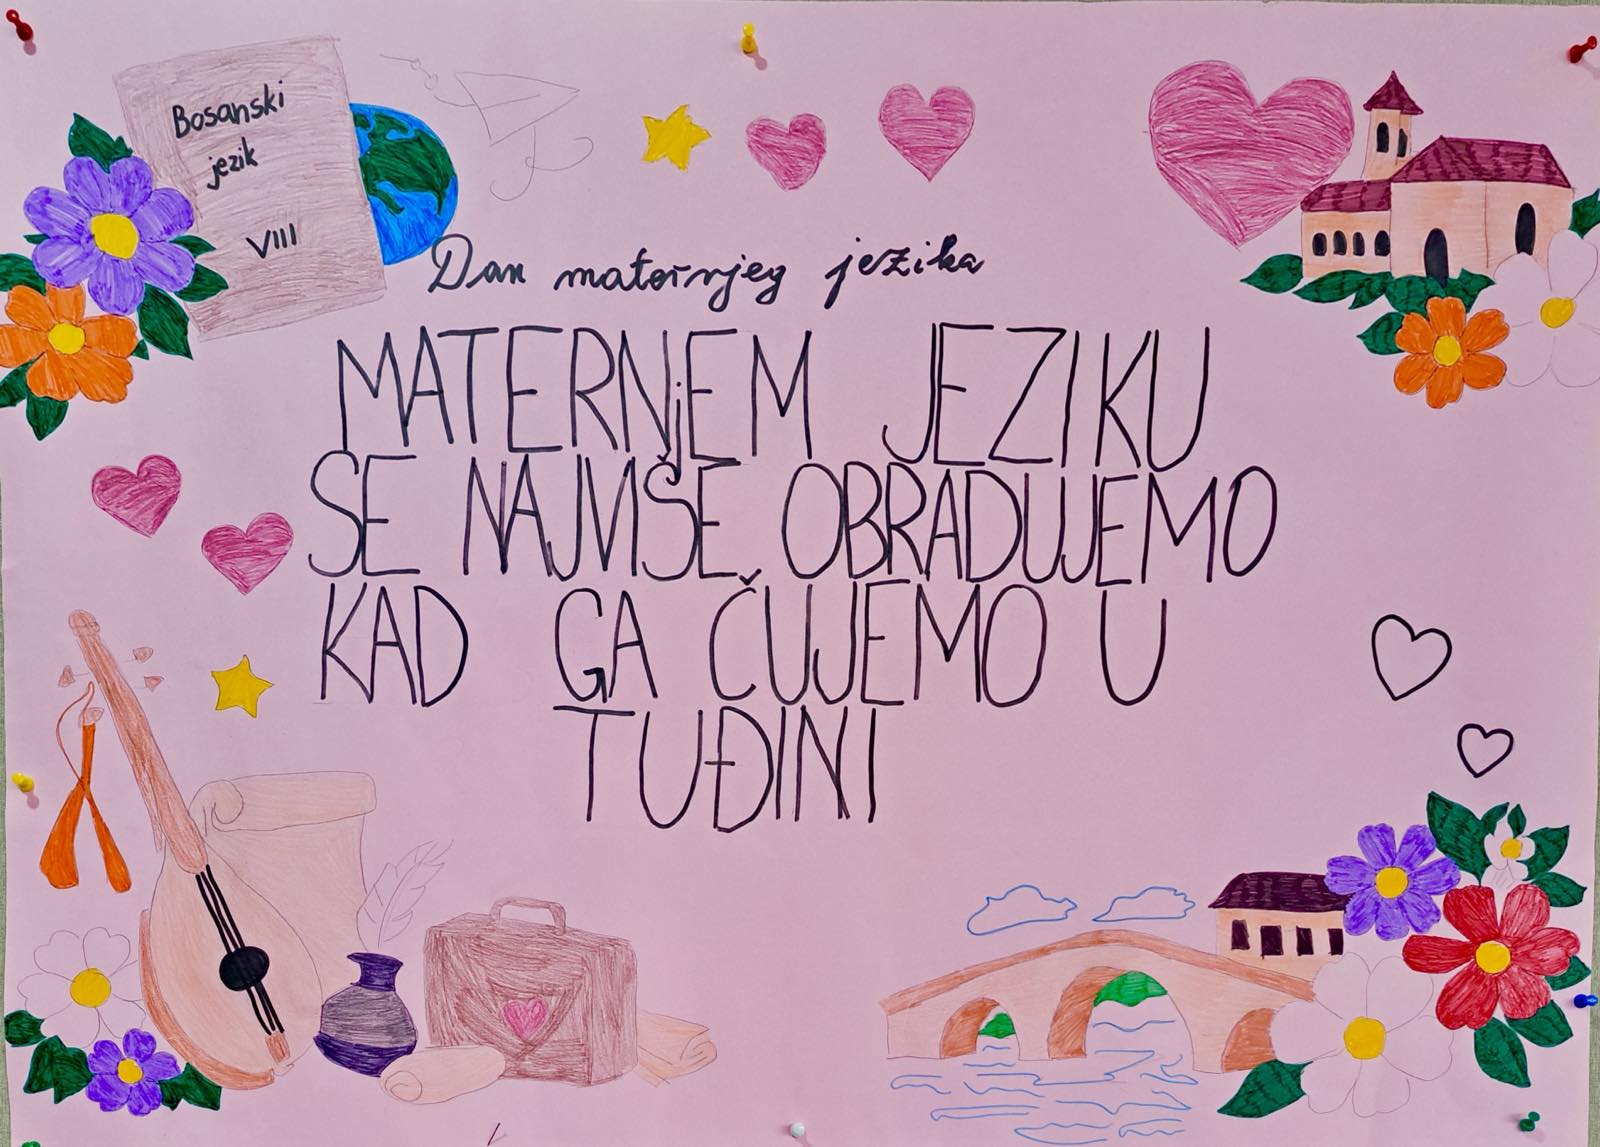 Bosanski
jezik
VIII
Dan maternjeg jezika
MATERNjEM JEZIKU
SE NAJVIŠE OBRADUJEMO
KAD GA ČUJEMO U
TUĐINI